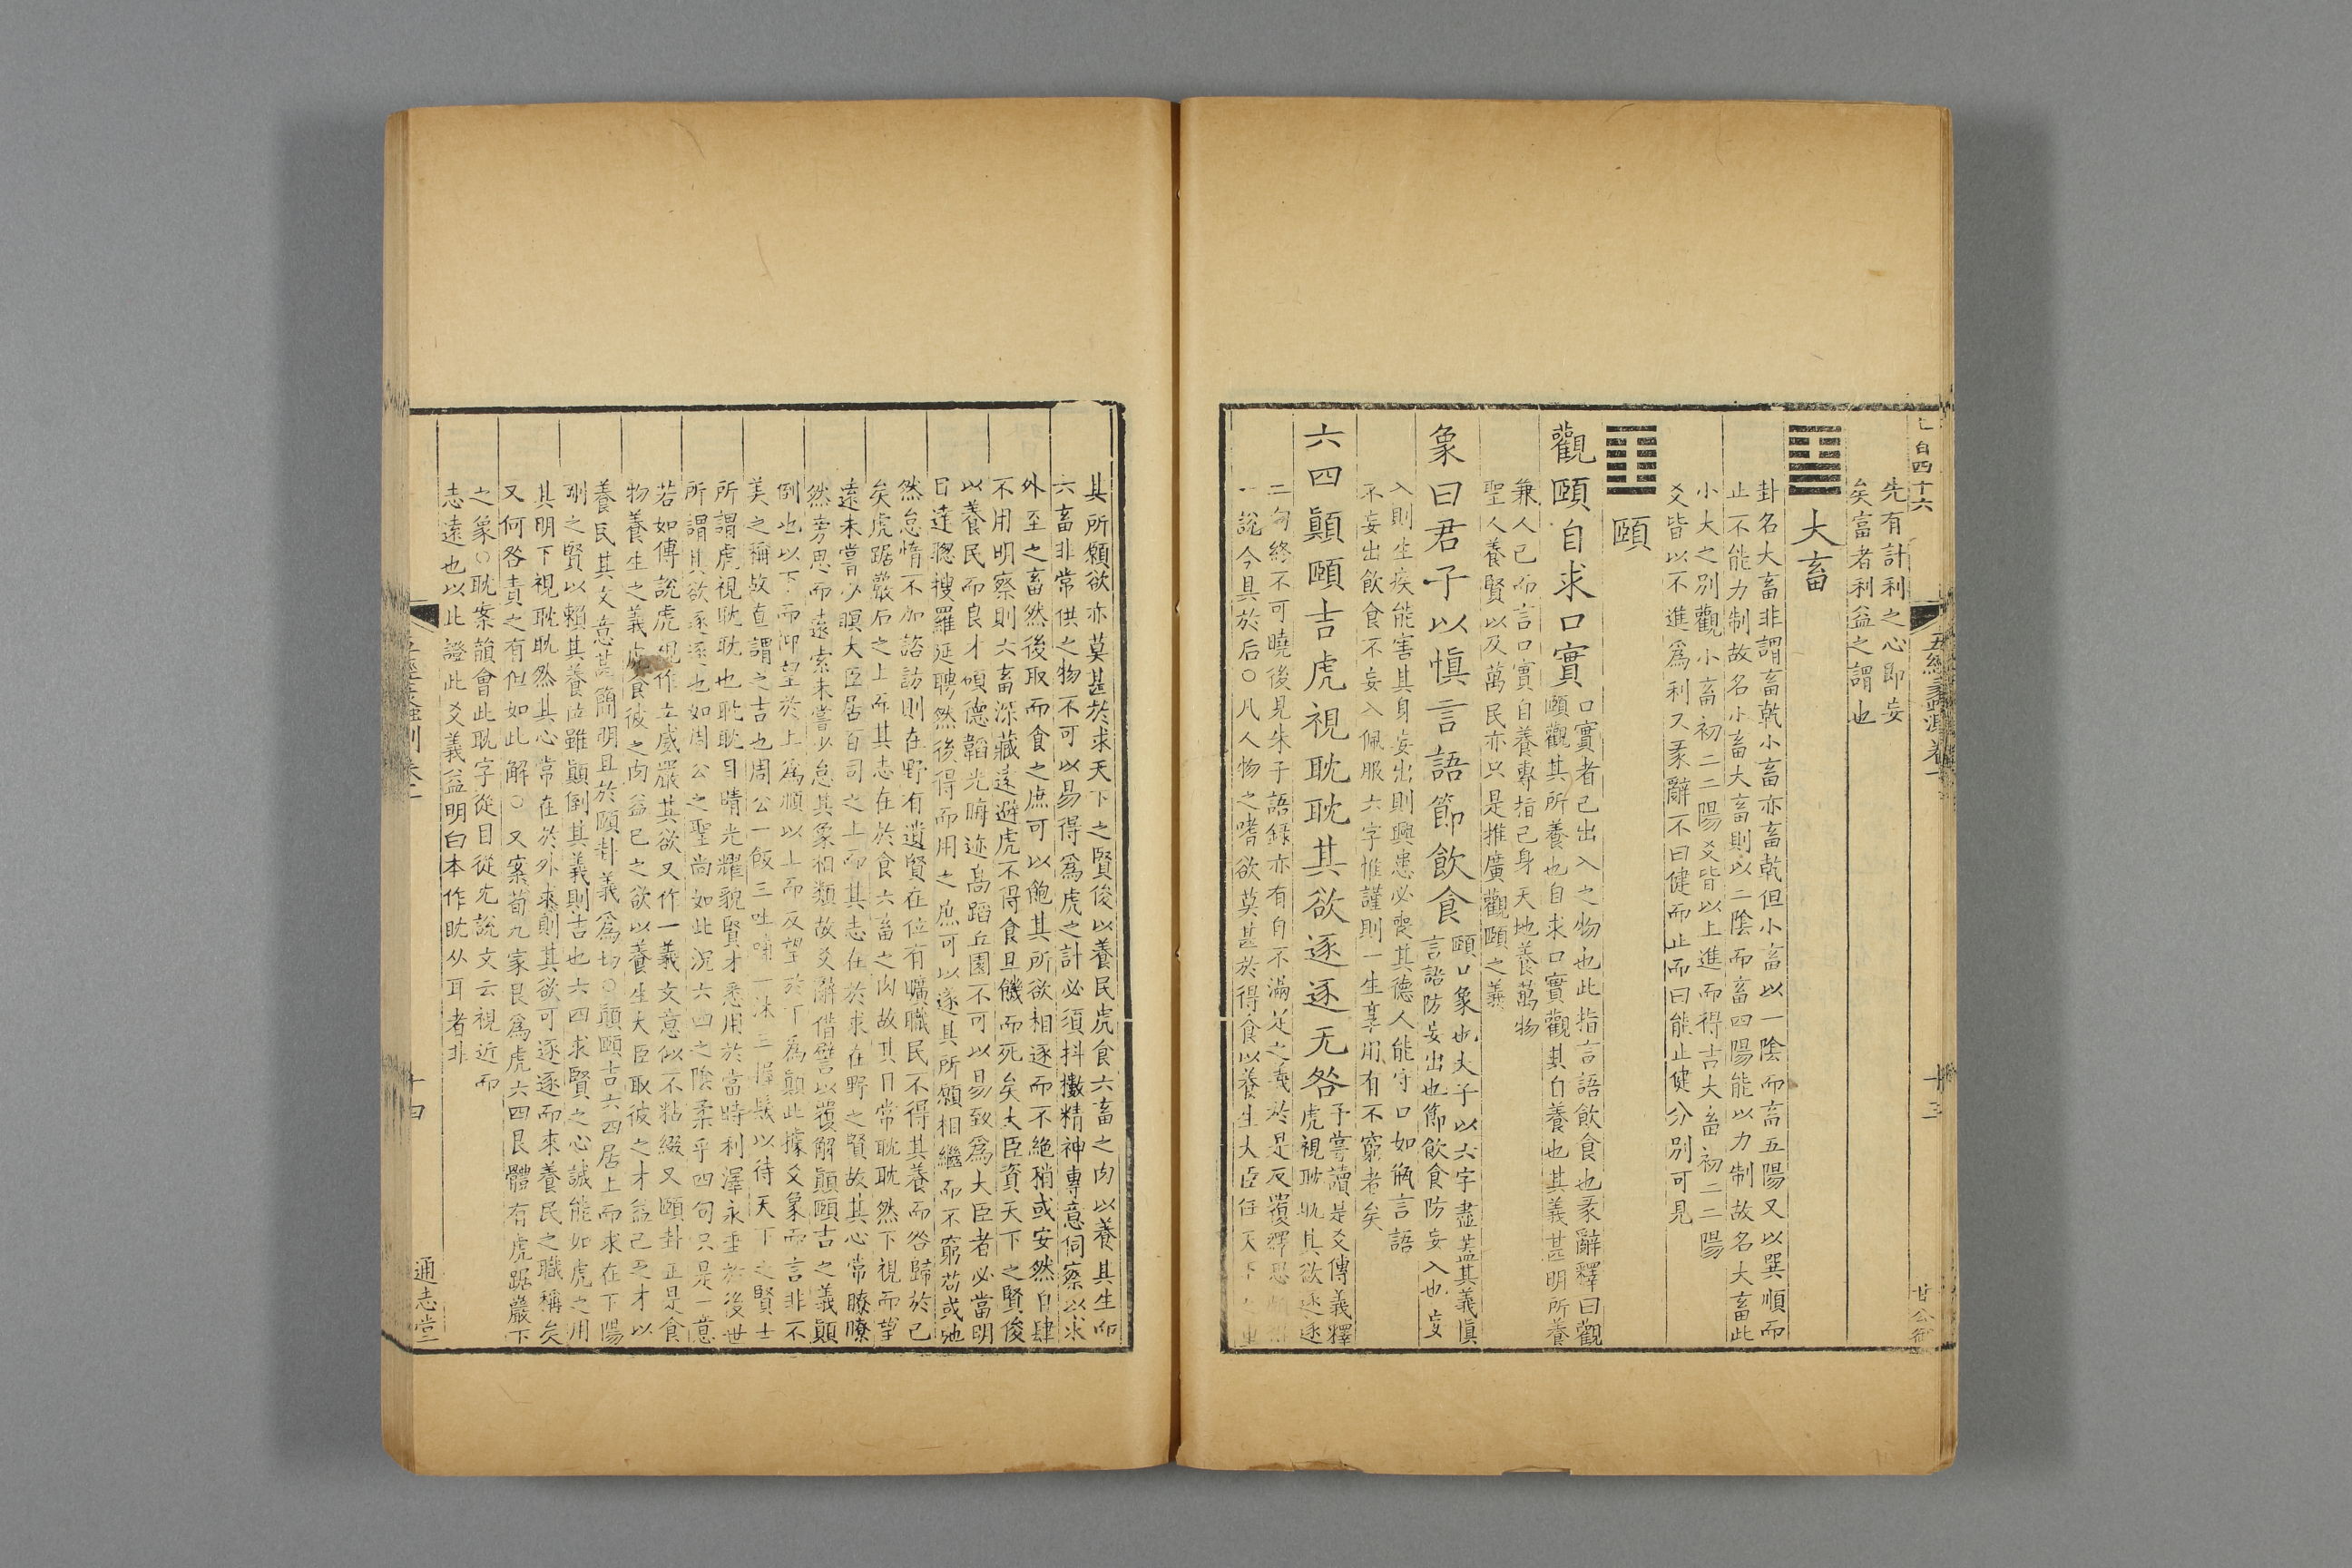 先有計利之心即妄
矣富者利益之謂也
大畜
卦名大畜非謂畜乾小畜亦畜乾但小畜以一陰而畜五陽又以巽順而
止不能力制故名小畜大畜則以二陰而畜四陽能以力制故名大畜此
小大之別觀小畜初二二陽爻皆以上進而得吉大畜初二二陽
爻皆以不進爲利又彖辭不曰健而止而曰能止健分別可見
頤
觀頤自求口實
口實者己出入之物也此指言語飲食也彖辭釋曰觀
頤觀其所養也自求口實觀其自養也其義甚明所養
兼人己而言口實自養專指己身天地養萬物
聖人養賢以及萬民亦只是推廣觀頤之義
象曰君子以愼言語節飲食
頤口象也夫子以六字盡蓋其義愼
言語防妄出也節飲食防妄入也妄
入則生疾能害其身妄出則興患必喪其德人能守口如甁言語
不妄出飲食不妄入佩服六字惟謹則一生享用有不窮者矣
六四顚頤吉虎視耽耽其欲逐逐无咎
予嘗讀是爻傳義釋
虎視耽耽其欲逐逐
二句終不可曉後見朱子語錄亦有自不滿足之義於是反覆繹思
一說今具於后○凡人物之嗜欲莫甚於得食以養生大臣任天下之重
其所願欲亦莫甚於求天下之賢俊以養民虎食六畜之肉以養其生而
六畜非常供之物不可以易得爲虎之計必須抖擻精神專意伺察以求
外至之畜然後取而食之庶可以飽其所欲相逐而不絕稍或安然自肆
不用明察則六畜深藏遠避虎不得食且饑而死矣大臣資天下之賢俊
以養民而良才碩德韜光晦迹高蹈丘園不可以易致爲大臣者必當明
目達聰搜羅延聘然後得而用之庶可以遂其所願相繼而不窮苟或弛
然怠惰不加諮訪則在野有遺賢在位有曠職民不得其養而咎歸於己
矣虎踞巖石之上而其志在於食六畜之肉故其目常耽耽然下視而望
遠未嘗少瞑大臣居百司之上而其志在於求在野之賢故其心常瞭瞭
然旁思而遠索未嘗少怠其象相類故爻辭借譬以覆解顚頤吉之義顚
倒也以下而仰望於上爲順以上而反望於下爲顚此據爻象而言非不
美之稱故直謂之吉也周公一飯三吐哺一沐三握髮以待天下之賢士
所謂虎視耽耽也耽耽目睛光耀貌賢才悉用於當時利澤永垂於後世
所謂其欲逐逐也如周公之聖尚如此況六四之陰柔乎四句只是一意
若如傳說虎視作立威嚴其欲又作一義文意似不粘綴又頤卦正是食
物養生之義虎食彼之肉益已之欲以養生大臣取彼之才益己之才以
養民其文意甚簡明且於頤卦義爲切○顚頤吉六四居上而求在下陽
剛之賢以賴其養位雖顚倒其義則吉也六四求賢之心誠能如虎之用
其明下視耽耽然其心常在於外求則其欲可逐逐而來養民之職稱矣
又何咎責之有但如此解○又案荀九家艮爲虎六四艮體有虎踞巖下
之象○耽案韻會此耽字從目從冘說文云視近而
志遠也以此證此爻義益明白本作眈从耳者非
十四
通志堂